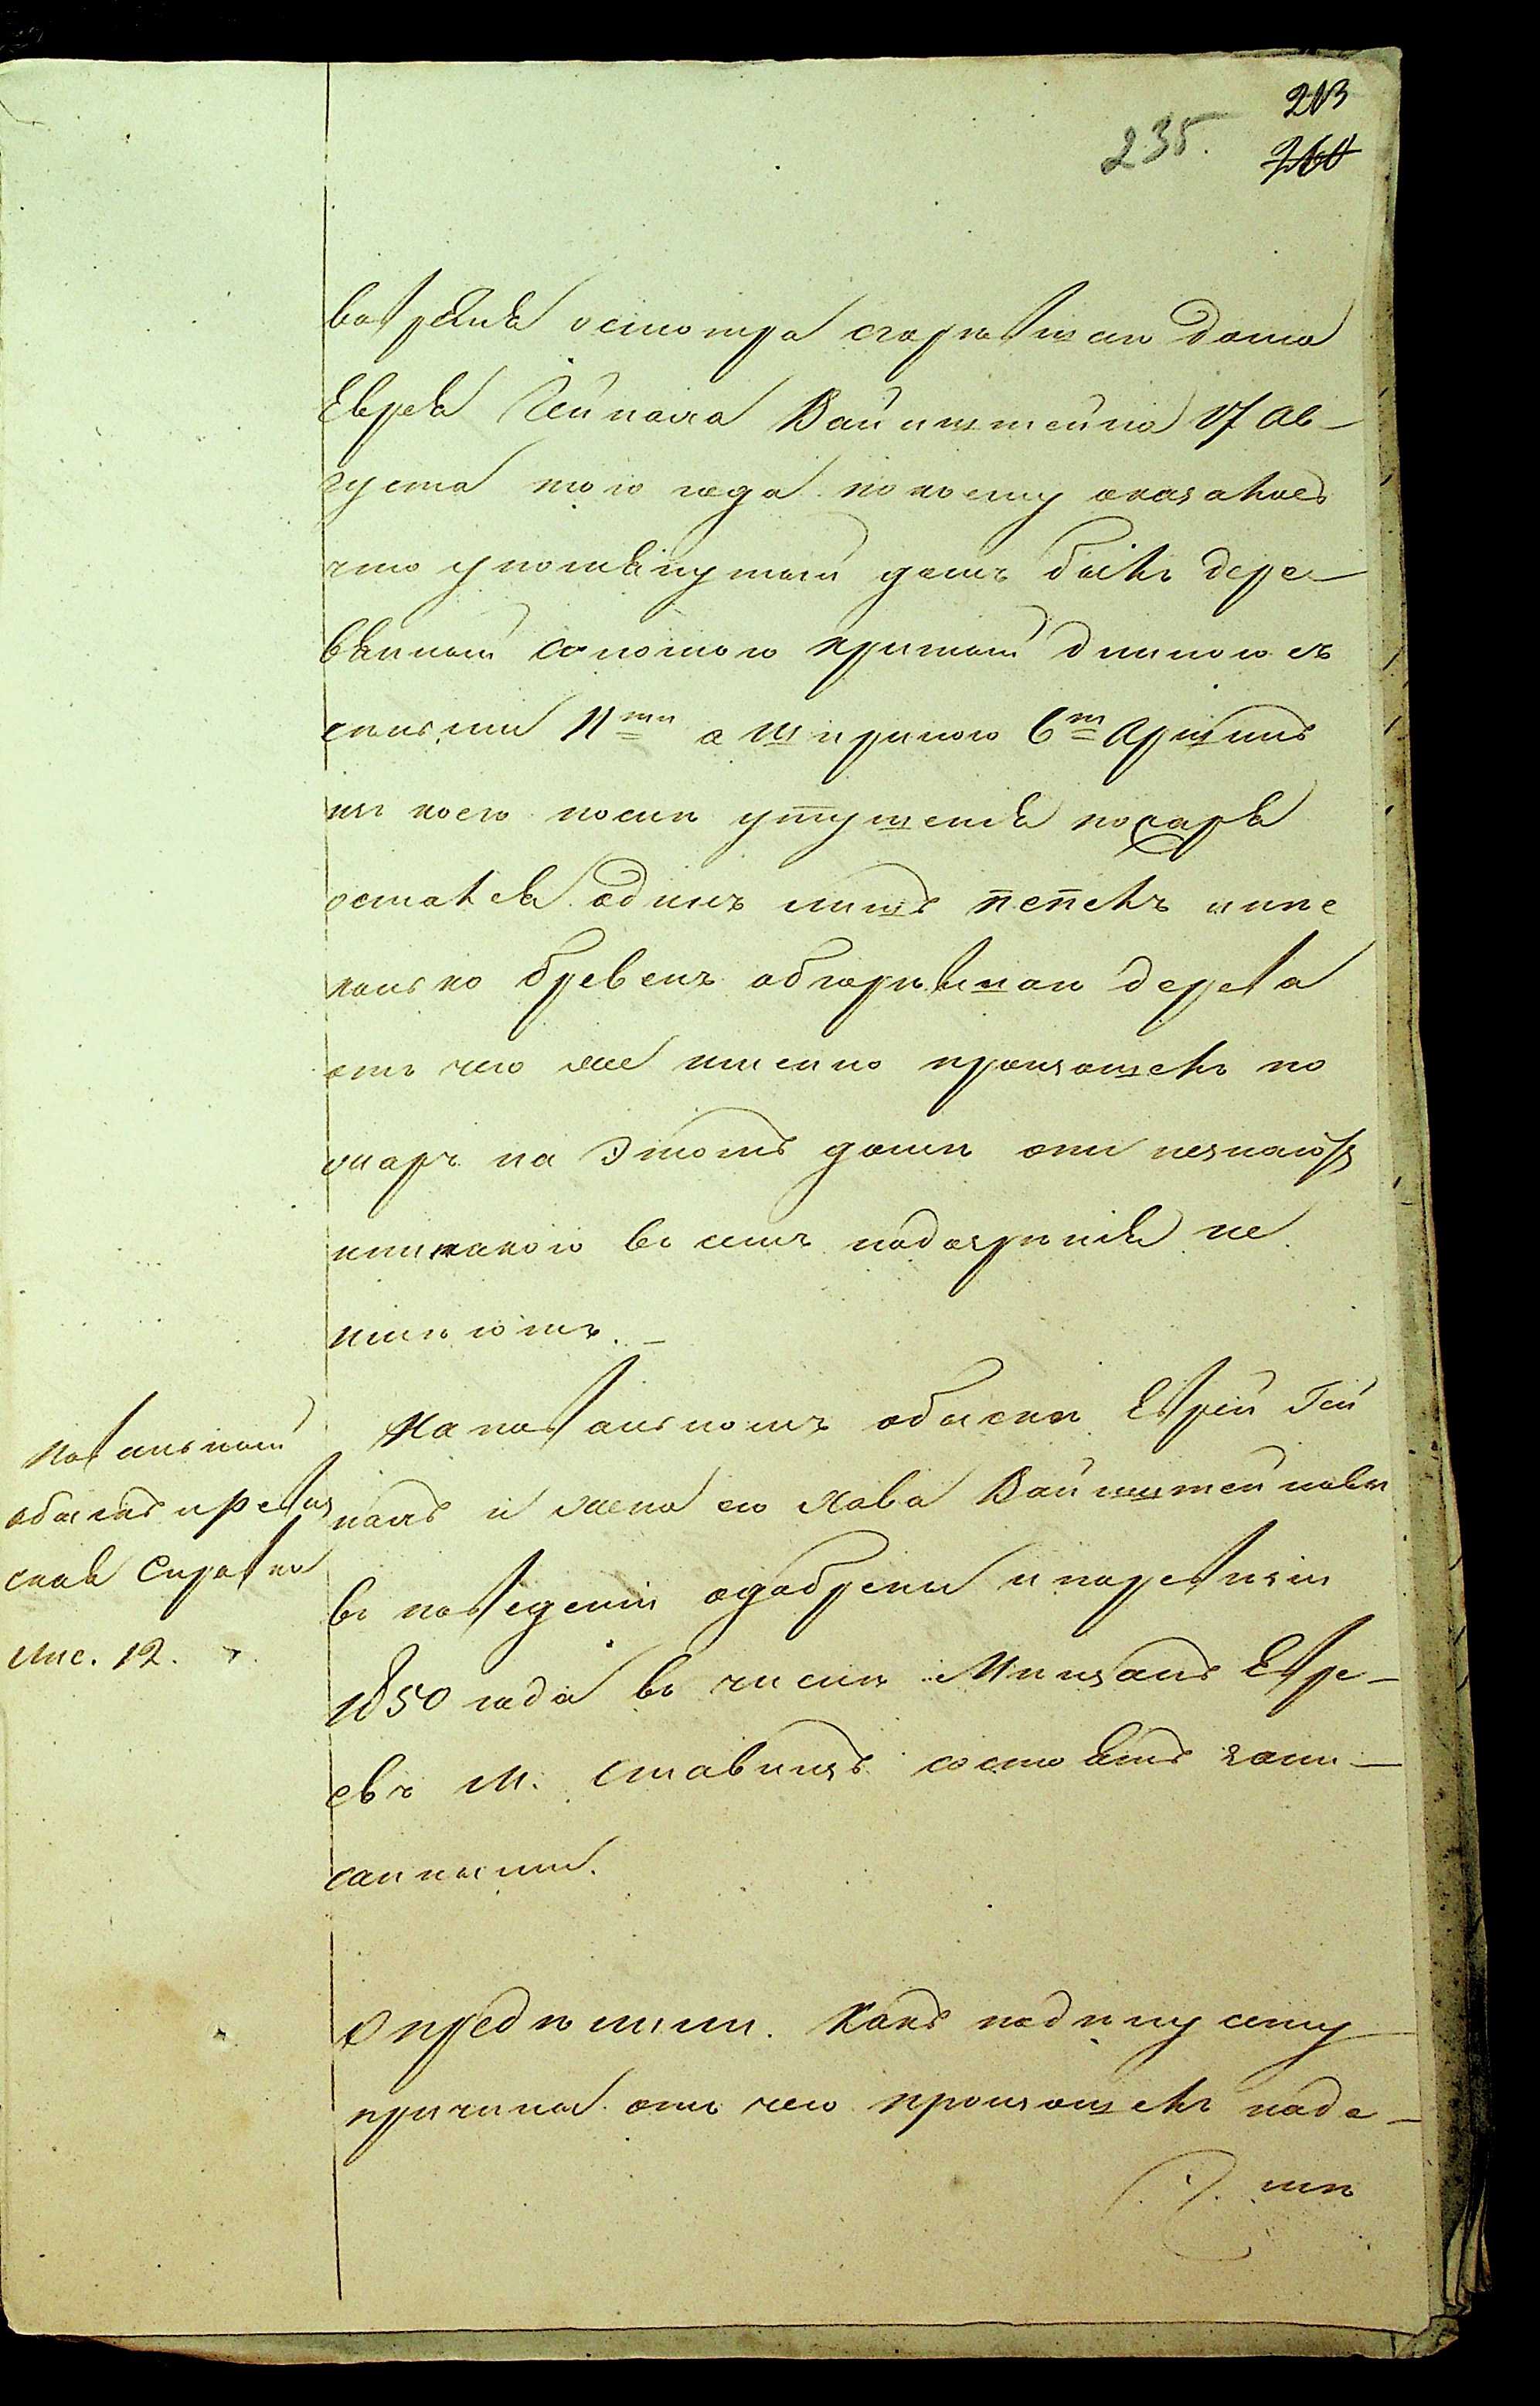 213
235.
260
во время осмотра сгоревшаго дома
Еврея Гейнаха Вайнштейна 17 Ав–
густа того года по коему оказалось
что упомянутый домъ былъ дере–
вянный соломою крытый длиною съ
сеньми 11ти а шириною 6ти Аршинъ
изъ коего после утушенія пожара
остался одинъ лишь пепелъ и не
колько бревенъ обгоревшаго дерева
отъ чего же именно произошелъ по
жаръ на этотъ домъ они незнаютъ
никакого въ семъ подозренія не
имеютъ. –
На повальномъ обыске Еврей Гей
нахъ и жена его Хава Вайнштейновы
въ поведеніи одобрены и по ревизіи
1850 года въ числе Мещанъ Евре–
евъ м. Ставищъ состоятъ запи–
санными.
Повальный
обыскъ и ревиз
ская Справка
Лис. 12.
Определили. Какъ по делу сему
причина отъ чего произошелъ на до–
ме